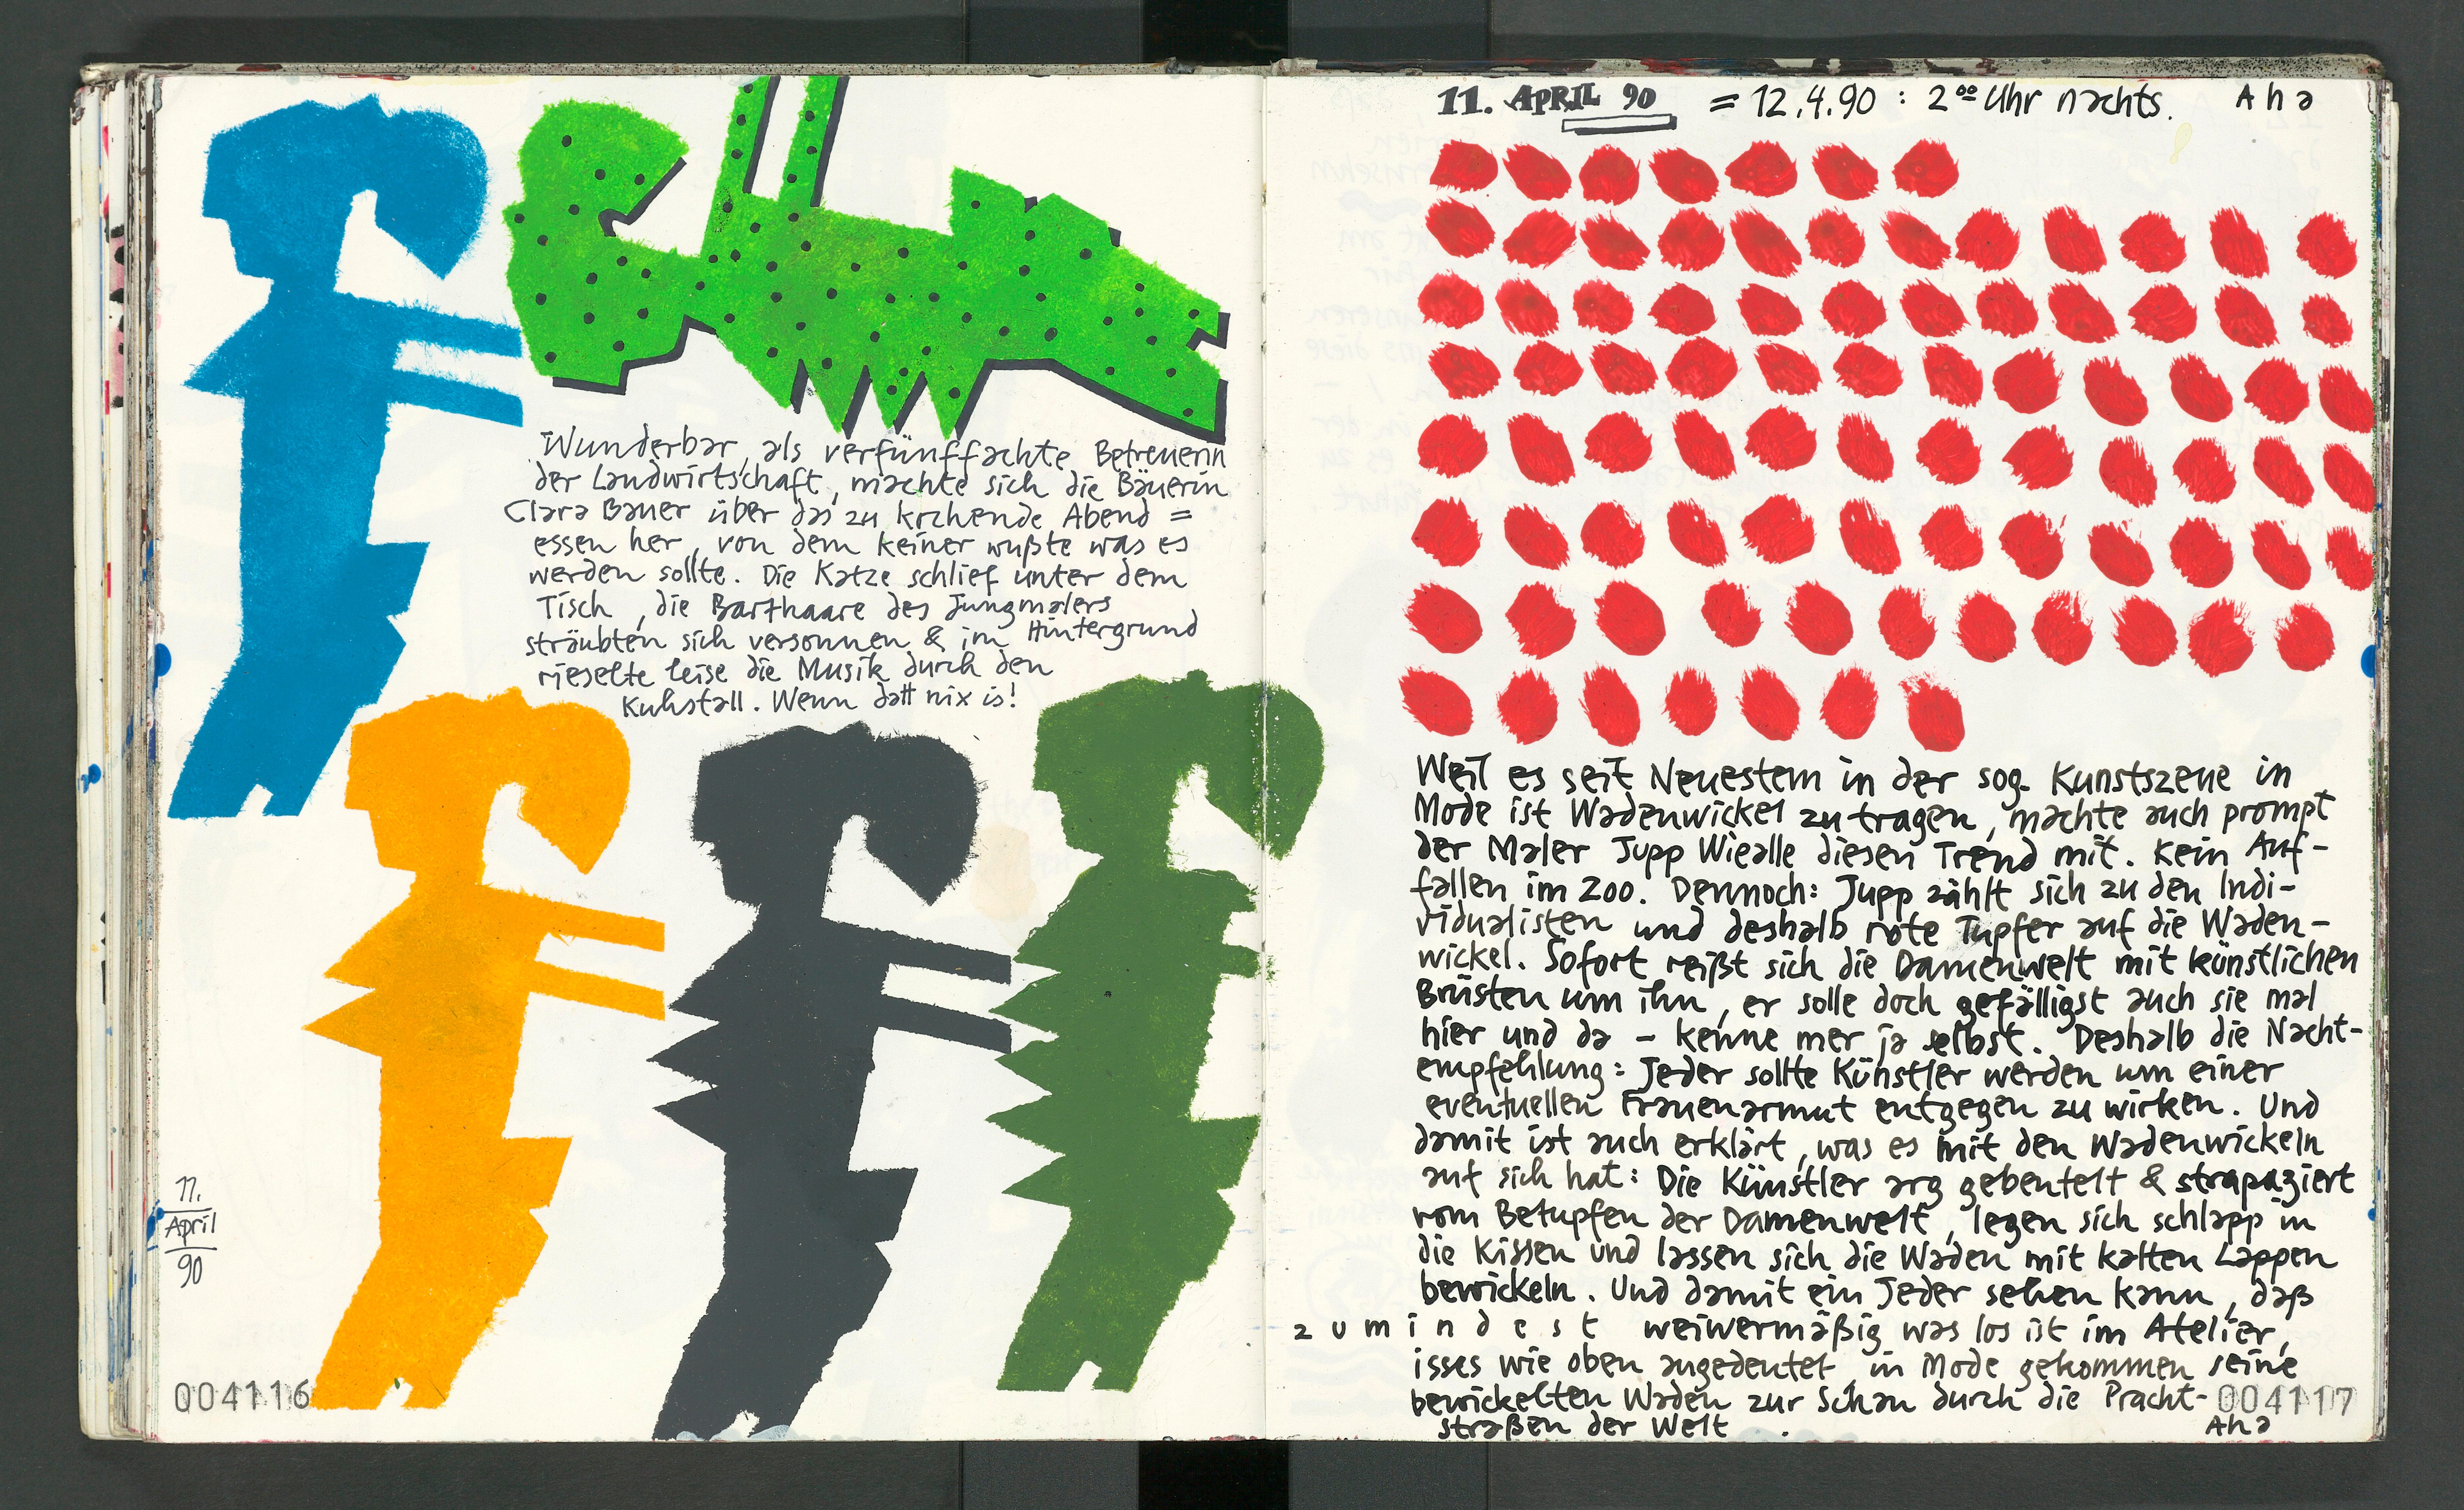 Wunderbar, als verfünffachte Betreuerin
der Landwirtschaft, machte sich die Bäuerin
Clara Bauer über das zu kochende Abend =
essen her, von dem keiner wußte was es
werden sollte. Die Katze schlief unter dem
Tisch, die Barthaare des Jungmalers
sträubten sich versonnen & im Hintergrund
rieselte leise die Musik durch den
Kuhstall. Wenn datt nix is!
11.
April
90
004116
11. APRIL 90 = 12.4.90 : 2⁰⁰ Uhr nachts. Aha
Weil es seit Neuestem in der sog. Kunstszene in
Mode ist Wadenwickel zu tragen, machte auch prompt
der Maler Jupp Wiealle diesen Trend mit. Kein Auf-
fallen im Zoo. Dennoch: Jupp zählt sich zu den Indi-
vidualisten und deshalb rote Tupfer auf die Waden-
wickel. Sofort reißt sich die Damenwelt mit künstlichen
Brüsten um ihn, er solle doch gefälligst auch sie mal
hier und da - kenne mer ja selbst. Deshalb die Nacht-
empfehlung: Jeder sollte Künstler werden um einer
eventuellen Frauenarmut entgegen zu wirken. Und
damit ist auch erklärt, was es mit den Wadenwickeln
auf sich hat: Die Künstler arg gebeutelt & strapaziert
vom Betupfen der Damenwelt, legen sich schlapp in
die Kissen und lassen sich die Waden mit kalten Lappen
bewickeln. Und damit ein Jeder sehen kann, daß
zumindest weiwermäßig was los ist im Atelier,
isses wie oben angedeutet, in Mode gekommen seine
bewickelten Waden zur Schau durch die Pracht-
straßen der Welt.
004117
Aha